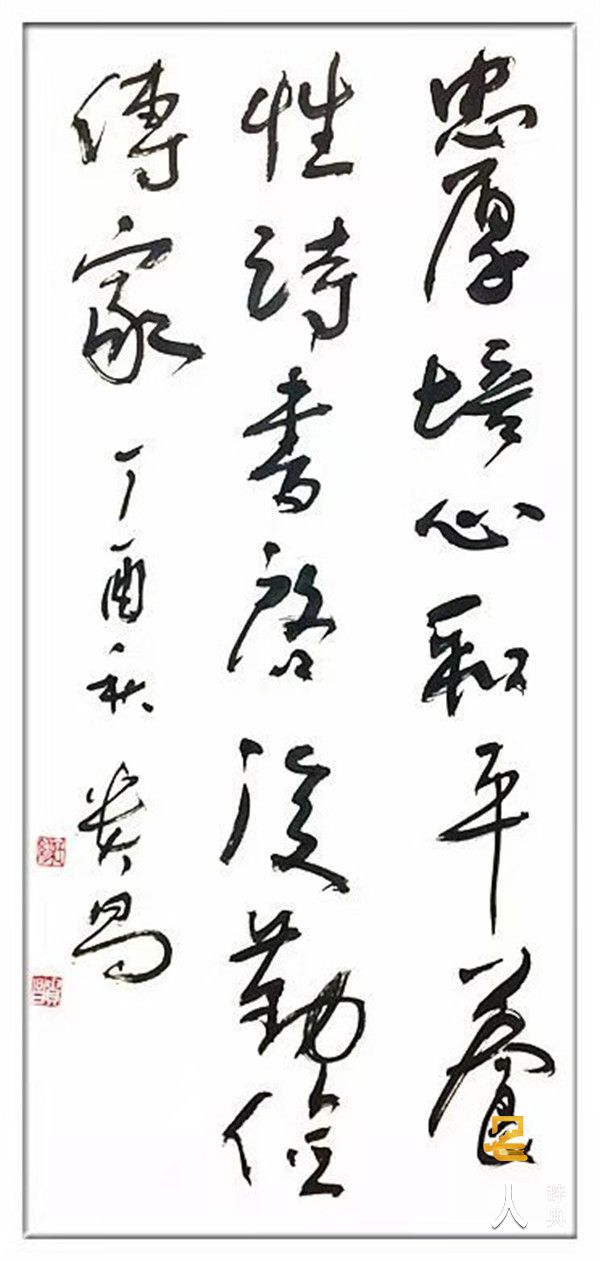 忠厚培心和平養
性詩書啓後勤儉
傳家
丁酉秋 貴昌
名人辞典